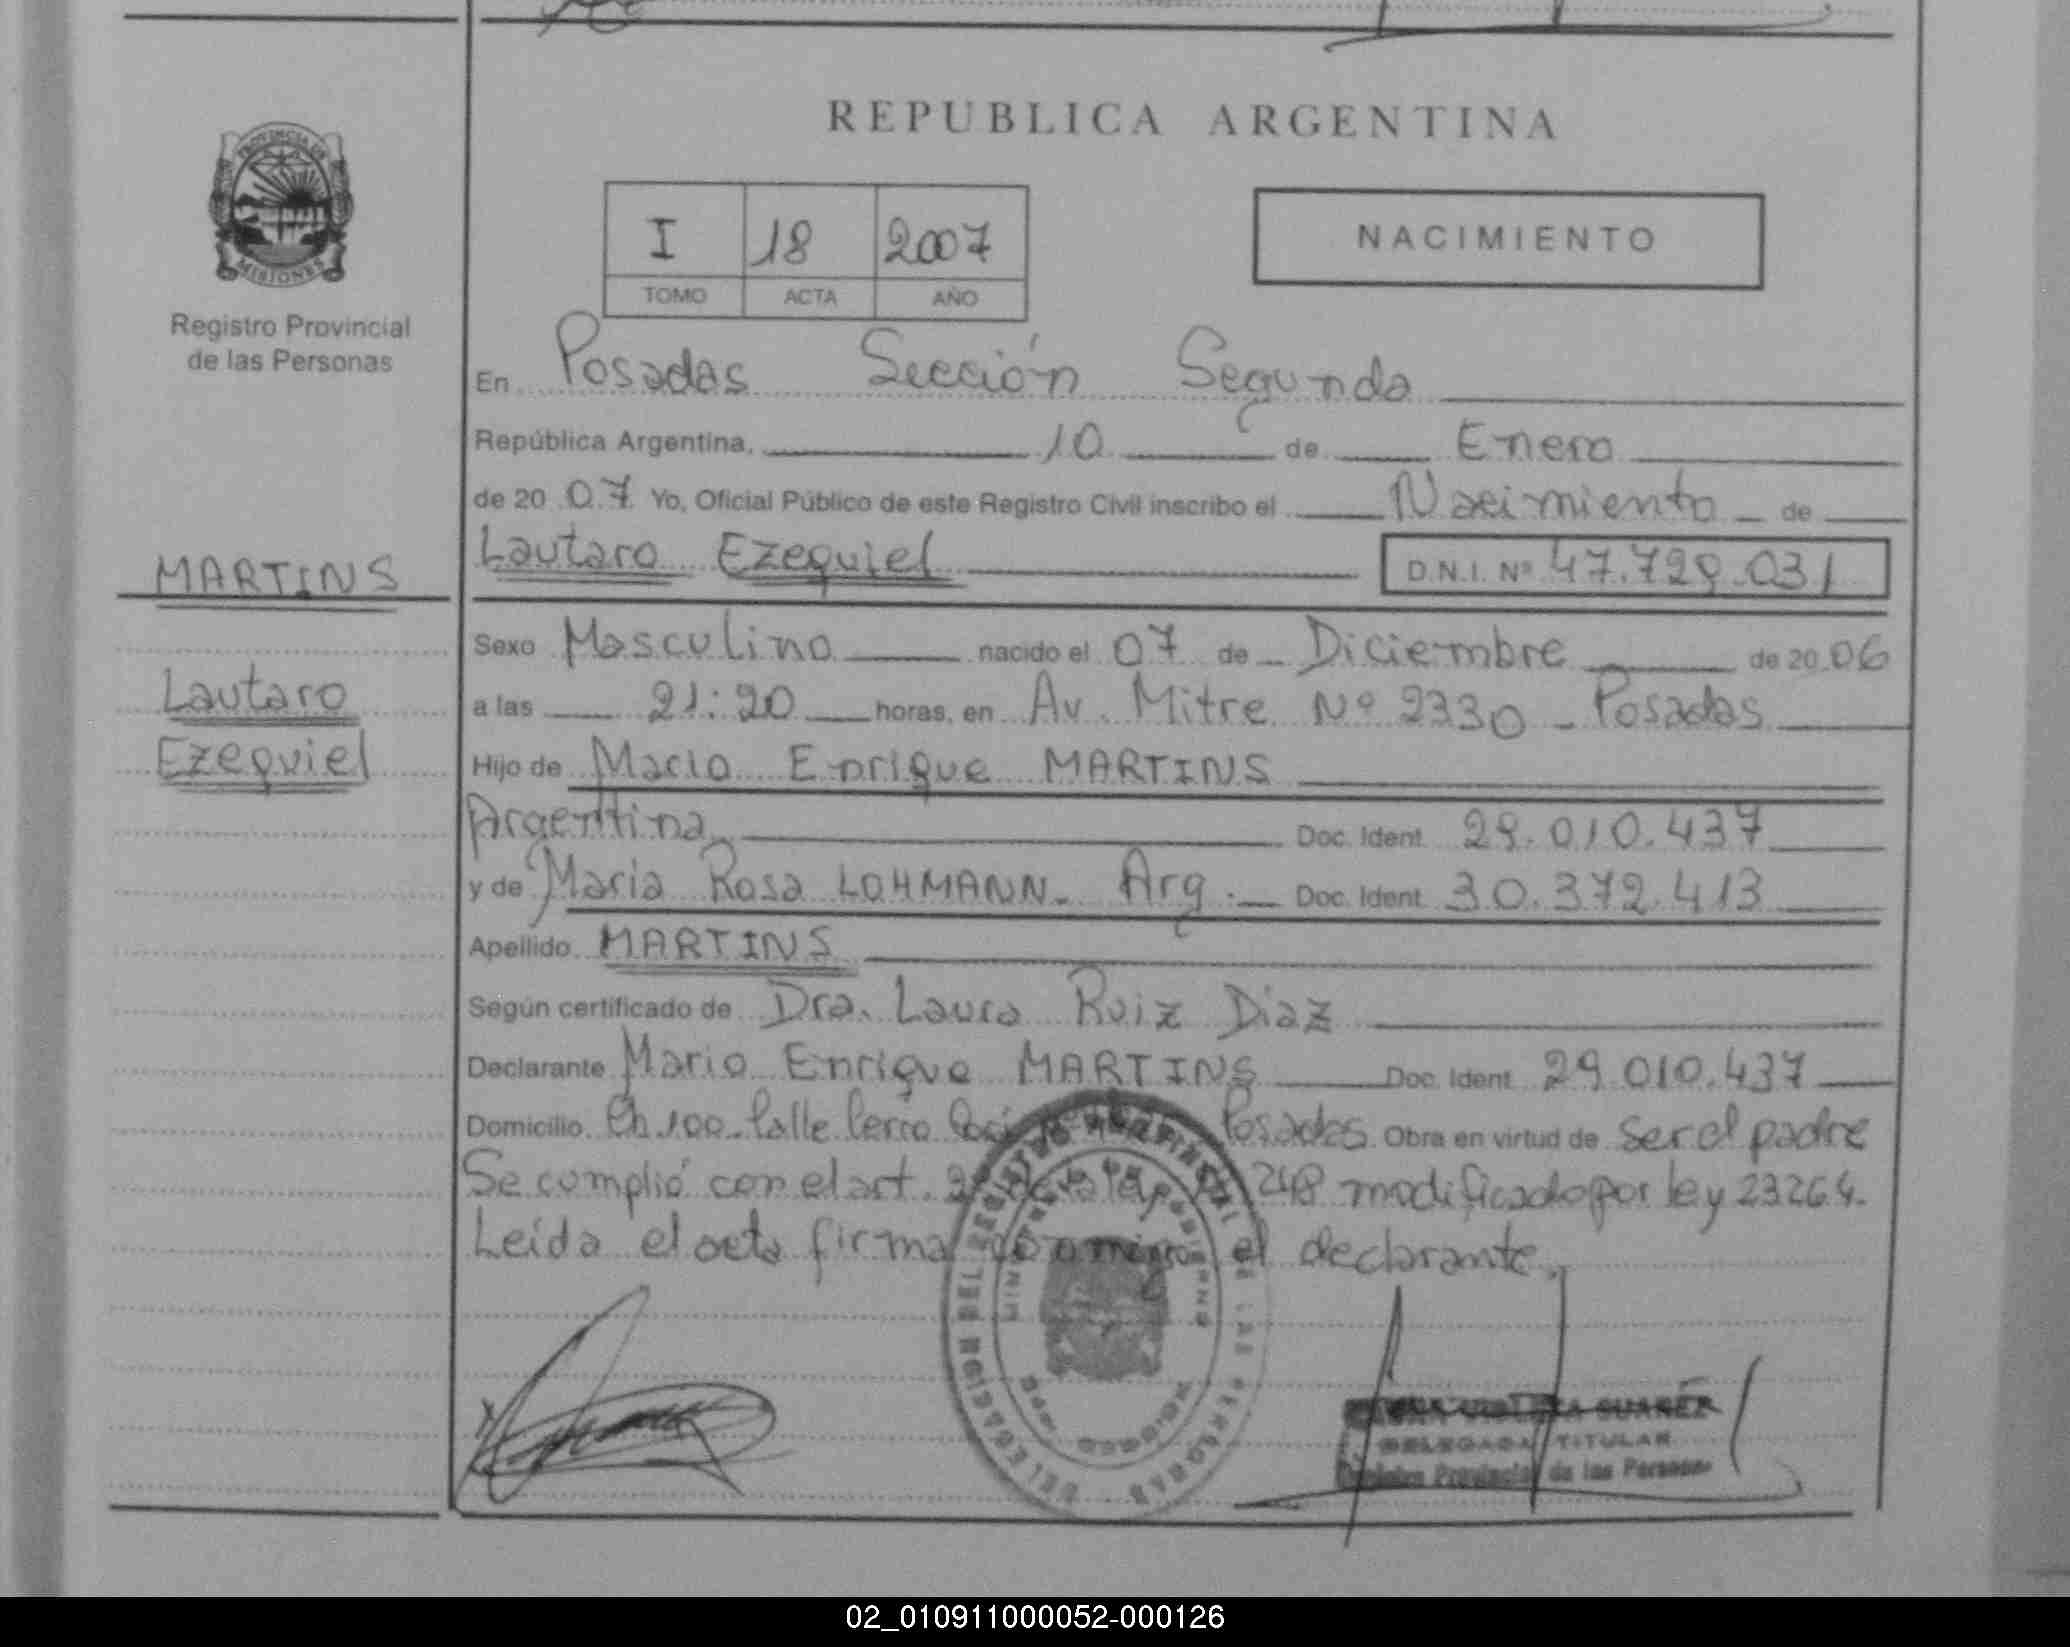 REPUBLICA ARGENTINA
PROVINCIA DE
MISIONES
Registro Provincial
de las Personas
I 18 2007
TOMO ACTA AÑO
NACIMIENTO
En Posadas Sección Segunda
República Argentina, 10 de Enero
de 20 07 Yo, Oficial Público de este Registro Civil inscribo el Nacimiento de
Lautaro Ezequiel D.N.I. Nº 47.729.031
MARTINS
Lautaro
Ezequiel
Sexo Masculino nacido el 07 de Diciembre de 20 06
a las 21:20 horas, en Av. Mitre Nº 2330 - Posadas
Hijo de Mario Enrique MARTINS
Argentina Doc. Ident. 29.010.437
y de Maria Rosa LOHMANN. Arg. Doc. Ident. 30.372.413
Apellido MARTINS
Según certificado de Dra. Laura Ruiz Diaz
Declarante Mario Enrique MARTINS Doc. Ident. 29.010.437
Domicilio Ch. 100. Calle Cerro Posadas Obra en virtud de ser el padre
Se complió con el art. 248 modificado por ley 23264.
Leída el acta firma conmigo el declarante.
DELEGACION DEL REGISTRO PROVINCIAL DE LAS PERSONAS
MINISTERIO DE GOBIERNO
SUAREZ
DELEGADA TITULAR
Registro Provincial de las Personas
02_010911000052-000126